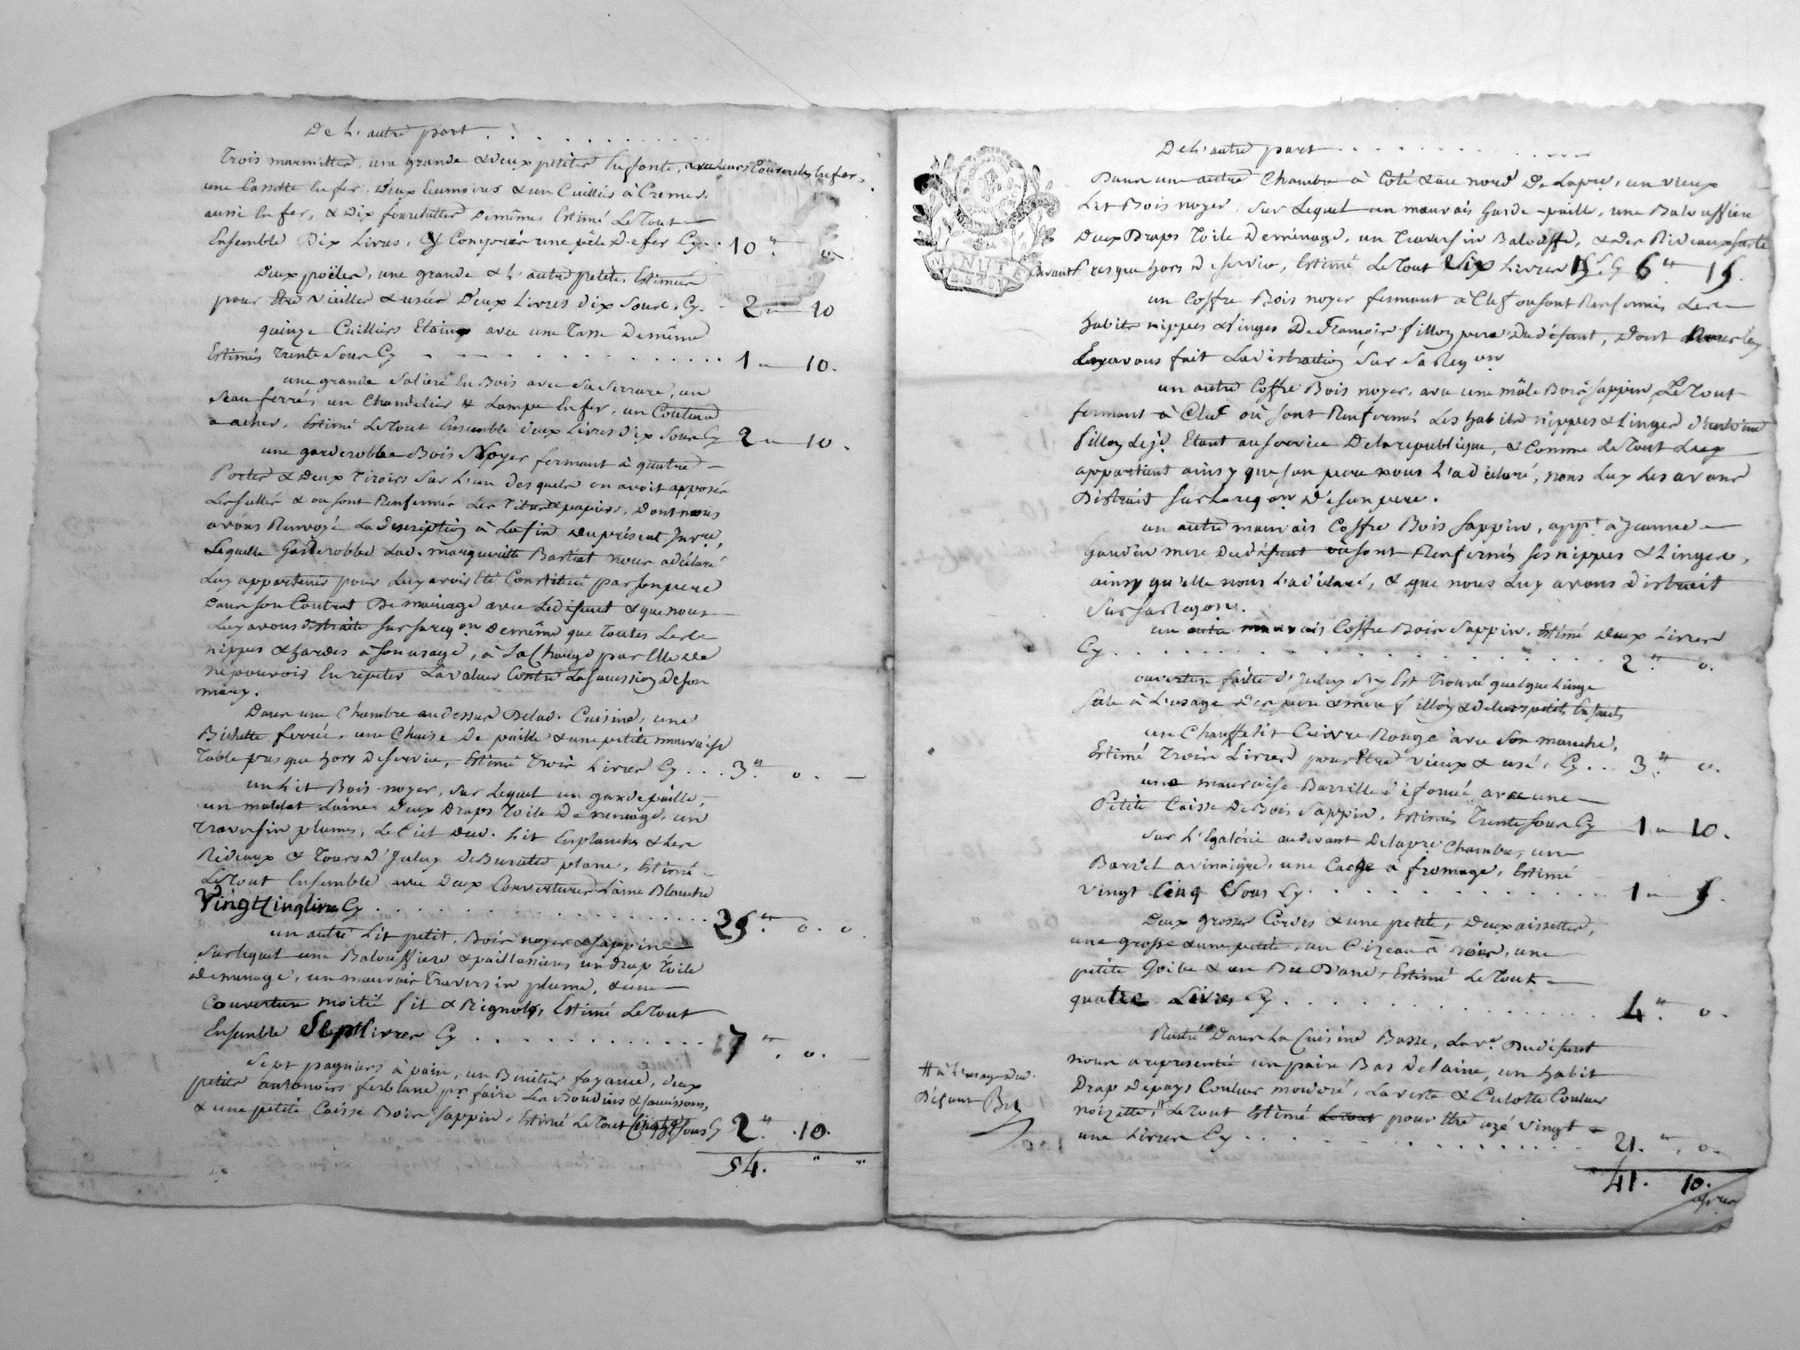 De L'autre part
Trois marmittes, une grande & deux petites En fonte, avec leurs Couvercles En fer,
une Cassotte En fer, deux Ecumoires & un Cuilliè à Cremer
aussi En fer, & dix fourchettes Demême, Estimé Le Tout
Ensemble Dix Livres, Cy Compries une pêle de fer Cy.. 10 " o
Deux poëles, une grande & L'autre petite, Estimées
pour Etre vieilles & usées Deux Livres dix Sous, Cy - 2 " 10
quinze Cuilliers Etaing avec une Tasse Demême
Estimés Trente Sous Cy 1 " 10.
une grande Saliere En Bois avec sa Serrure, un
Seau ferré, un Chandelier & Lampe En fer, un Couteau
a acher, Estimé Le Tout Ensemble deux Livres dix Sous Cy 2 " 10.
une garderobbe Bois Noyer fermant à quatre
Portes & Deux Tiroirs Sur L'un desquels on avoit apposés
Les sellés & ou sont Renfermés Les Titres & papiers, Dont nous
avons Renvoyé La Description à La fin du présent Invre,
Laquelle Garderobbe Lad. marguerite Bartrat nous a déclaré
Luy appartenir pour Luy avoir Eté Constitué par son pere
Dans son Contrat De mariage avec Le défunt & que nous
Luy avons distraite sur sa req.on Demême que Toutes Les
nippes & hardes à son usage, à La Charge par Elle de
ne pouvoir En repeter La valeur Contre La sucession de son
mary.
Dans une Chambre au dessus De lad. Cuisine, une
Bichette ferrée, une Chaise De paille & une petite mauvaise
Table presque hors de servie, Estimé Trois Livres Cy ... 3." o. —
un Lit Bois noyer, Sur Lequel un garde paille,
un matelat Laine Deux Draps Toile De menage, un
Traversin plumes, Le Ciel dud. Lit En planches & Les
Rideaux & Tours d'Iceluy De Burette plane, Estimé
Le Tout Ensemble avec Deux Couvertures Laine Blanche
Vingt Cinq Livres Cy 25." o. o
un autre Lit petit, Bois noyer & Sappin
Sur Lequel une Balouffiere & paillassiere, un drap Toile
de menage, un mauvais Traversin plume, & une
Couverture moitié fil & Rignots, Estimé Le Tout
Ensemble Sept Livres Cy 7 ". o. —
Sept pagniers à pain, un Benitier fayance, deux
petits antonoirs ferblanc pr. faire Les Boudins & Saucissons,
& une petite Caisse Bois Sappin, Estimé Le Tout Cinqte. Sous Cy 2." .10.
54. " "
De L'autre part
Dans un autre Chambre à Coté & au nord De La pre., un vieux
Lit Bois noyer, Sur Lequel un mauvais Garde-paille, une Balouffiere
Deux Draps Toile De ménage, un Traversin Balouffe, & des Rideaux Sarte
MINUTE
Presque hors De servie, Estimé Le Tout Six Livres 15 s. Cy 6 " 15.
un Coffre Bois noyer fermant à Clef ou sont Renfermés Les
habits nippes & Linges De François fillon pere Du défunt, Dont nous Luy
En avons fait La distraction Sur Sa Req on
un autre Coffre Bois noyer, avec une mâle Bois Sappin Le Tout
fermant à Clef où sont Renfermés Les habits nippes & Linges d'antoine
fillon Le je. Etant au service De la republique, & Comme Le Tout Luy
appartient ainsy que son pere nous L'a déclaré, nous Luy Les avons
Distrait Sur La req on De son pere.
un autre mauvais Coffre Bois Sappin, appt. à Jeanne
Gaudin mere Du défunt où sont Renfermés ses nippes & Linges,
ainsy qu'elle nous L'a déclaré, & que nous Luy avons distrait
Sur sa Reqon.
un autre mauvais Coffre Bois Sappin, Estimé Deux Livres
Cy 2 " o.
ouverture faite d'Iceluy S'y Est Trouvé quelque Linge
Sale à L'usage Des pere & mere fillon & de Leurs petits Enfants
un Chauffelit Cuivre Rouge avec Son manche,
Estimé Trois Livres pour Etre vieux & usé, Cy ... 3 " o.
une mauvaise Barrille défoncée avec une
Petite Caisse De Bois Sappin, Estimés Trente Sous Cy 1 " 10.
Sur L'Egalerie au devant De La pre Chambre, un
Barril a vinaigre, une Cage à fromage, Estimé
vingt Cinq Sous Cy. 1 " 5.
Deux grosses Cordes & une petite, Deux aissettes,
une grosse & une petite, un Cizeau à Bois, une
petite Goibe & un Bec D'ane, Estimé Le Tout
quatre Livres Cy 4." o.
Rentré Dans La Cuisine Basse, La ve. Du défunt
nous a representé un paire Bas De Laine, un habit
Drap De pays Couleur mordoré, La veste & Culotte Couleur
# à L'usage Dud.
Défunt
noizette, # Le Tout Estimé Le Tout pour Etre usé vingt
une Livres Cy 21. " o.
41. 10.